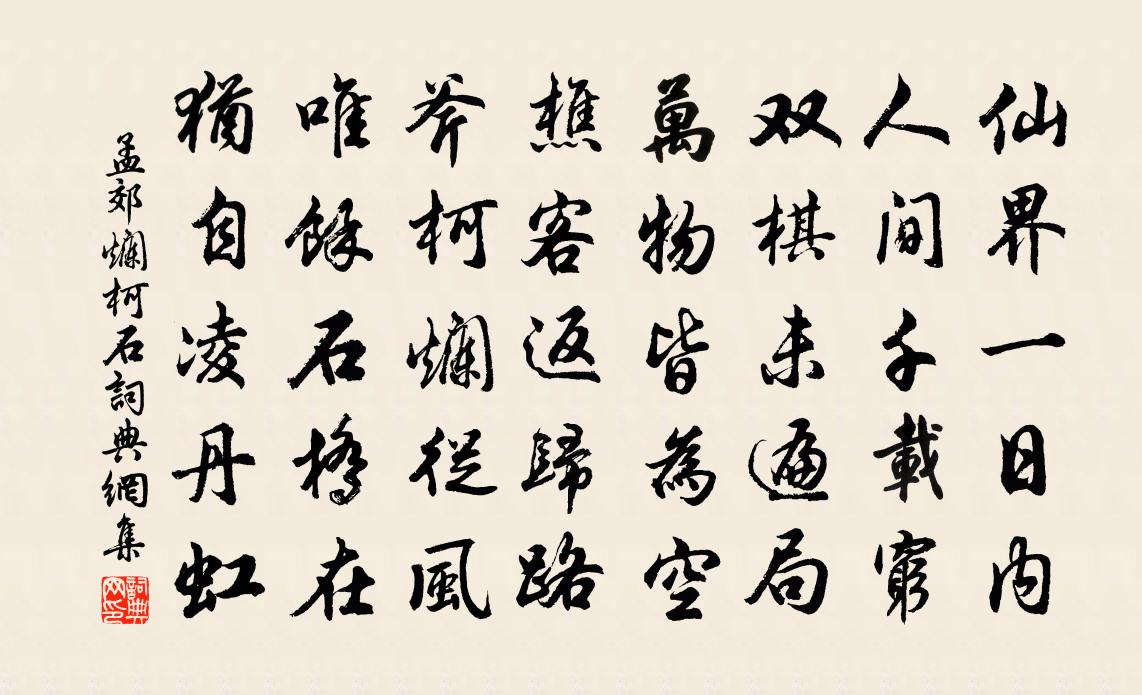 仙界一日内
人间千載窮
双棋未遍局
萬物皆為空
樵客返歸路
斧柯爛從風
唯餘石橋在
猶自凌丹虹
孟郊爛柯石詞典網集
詞典
网印